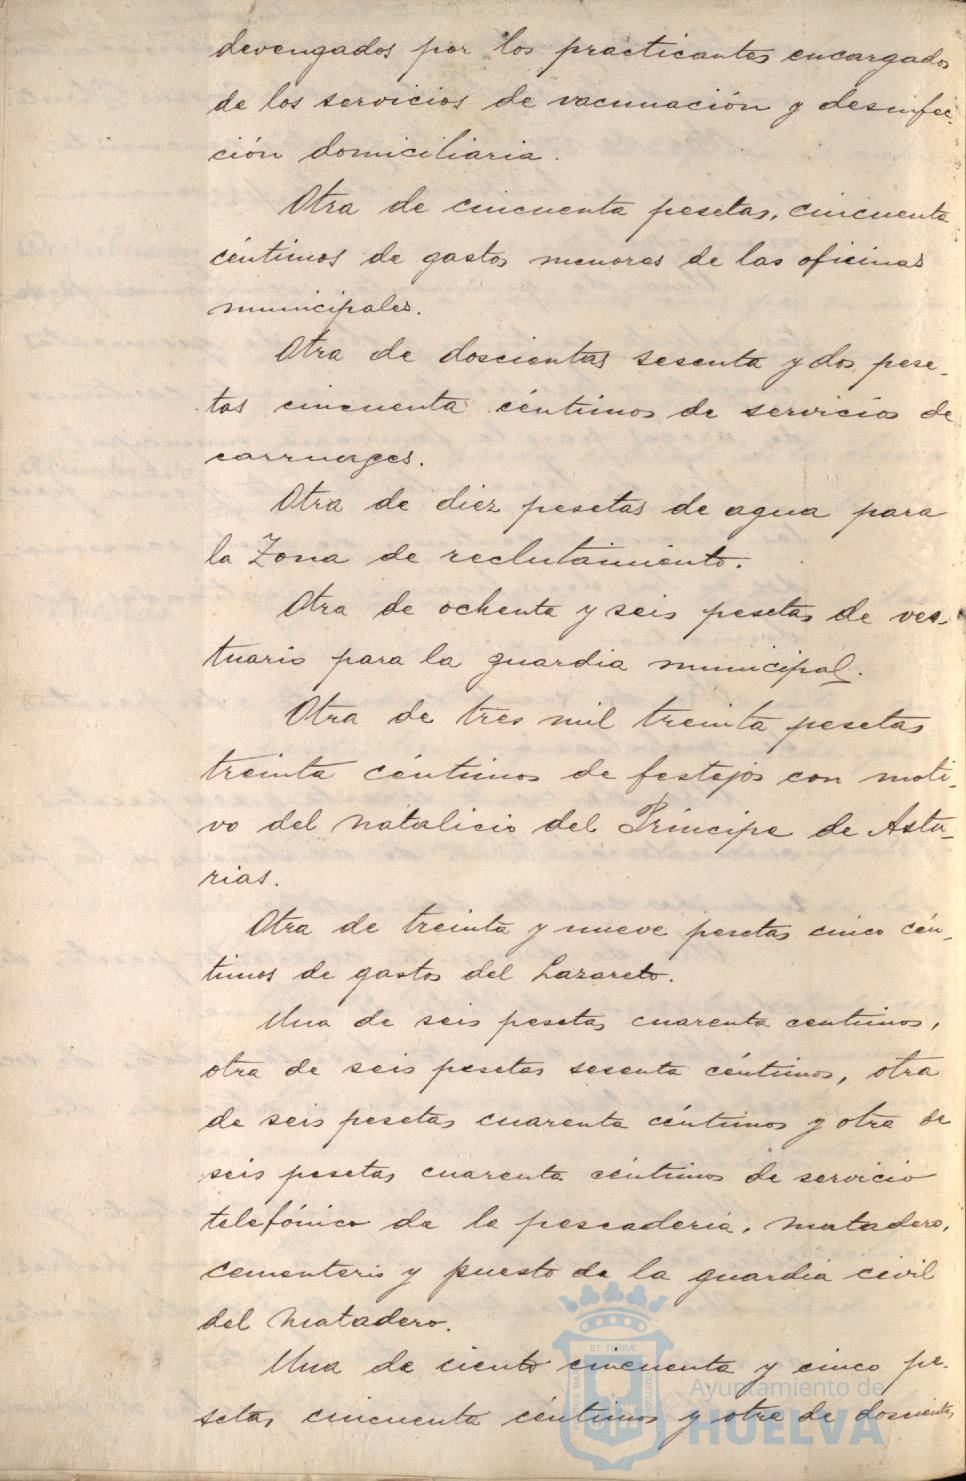 devengados por los practicantes encargados
de los servicios de vacunación y desinfec-
ción domiciliaria.
Otra de cincuenta pesetas, cincuenta
céntimos de gastos menores de las oficinas
municipales.
Otra de doscientas sesenta y dos pese-
tas cincuenta céntimos de servicios de
carruages.
Otra de diez pesetas de agua para
la Zona de reclutamiento.
Otra de ochenta y seis pesetas de ves-
tuario para la guardia municipal.
Otra de tres mil treinta pesetas
treinta céntimos de festejos con moti-
vo del natalicio del Príncipe de Astu-
rias.
Otra de treinta y nueve pesetas cinco cén-
timos de gastos del Lazareto.
Una de seis pesetas cuarenta centimos,
otra de seis pesetas sesenta céntimos, otra
de seis pesetas cuarenta céntimos y otra de
seis pesetas cuarenta céntimos de servicio
telefónico de la pescaderia, matadero,
cementerio y puesto de la guardia civil
del Matadero.
Una de ciento cincuenta y cinco pe-
setas cincuenta céntimos y otra de doscientas
ET TERRÆ
PORTUS MARIS
CUSTODIA
Ayuntamiento de
HUELVA